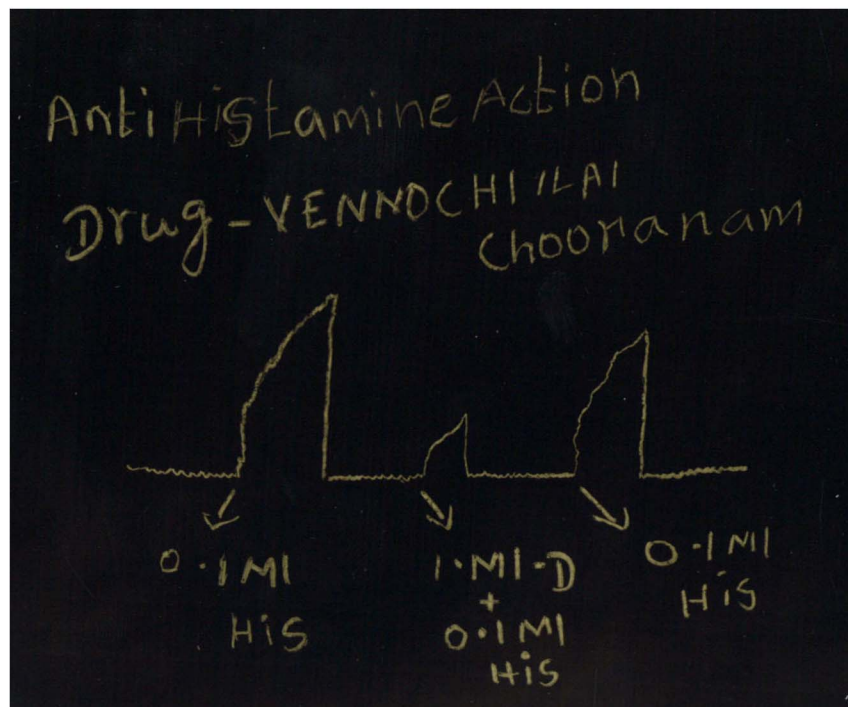 Anti Histamine Action
Drug - VENNOCHI ILAI
Chooranam
0.1Ml
His
1.Ml-D
+
0.1Ml
His
0.1Ml
His